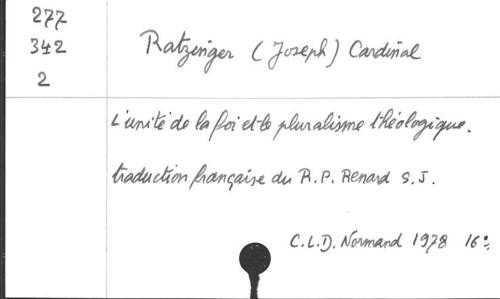 277
342
2
Ratzinger (Joseph) Cardinal
L'unité de la foi et le pluralisme théologique.
traduction française du R.P. Renard S.J.
C.L.D. Normand 1978 16°: